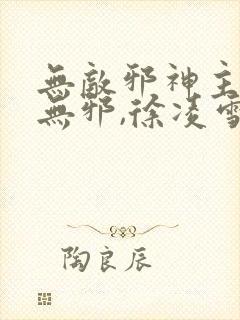 無敵邪神主
無邪,徐凌雪
陶良辰